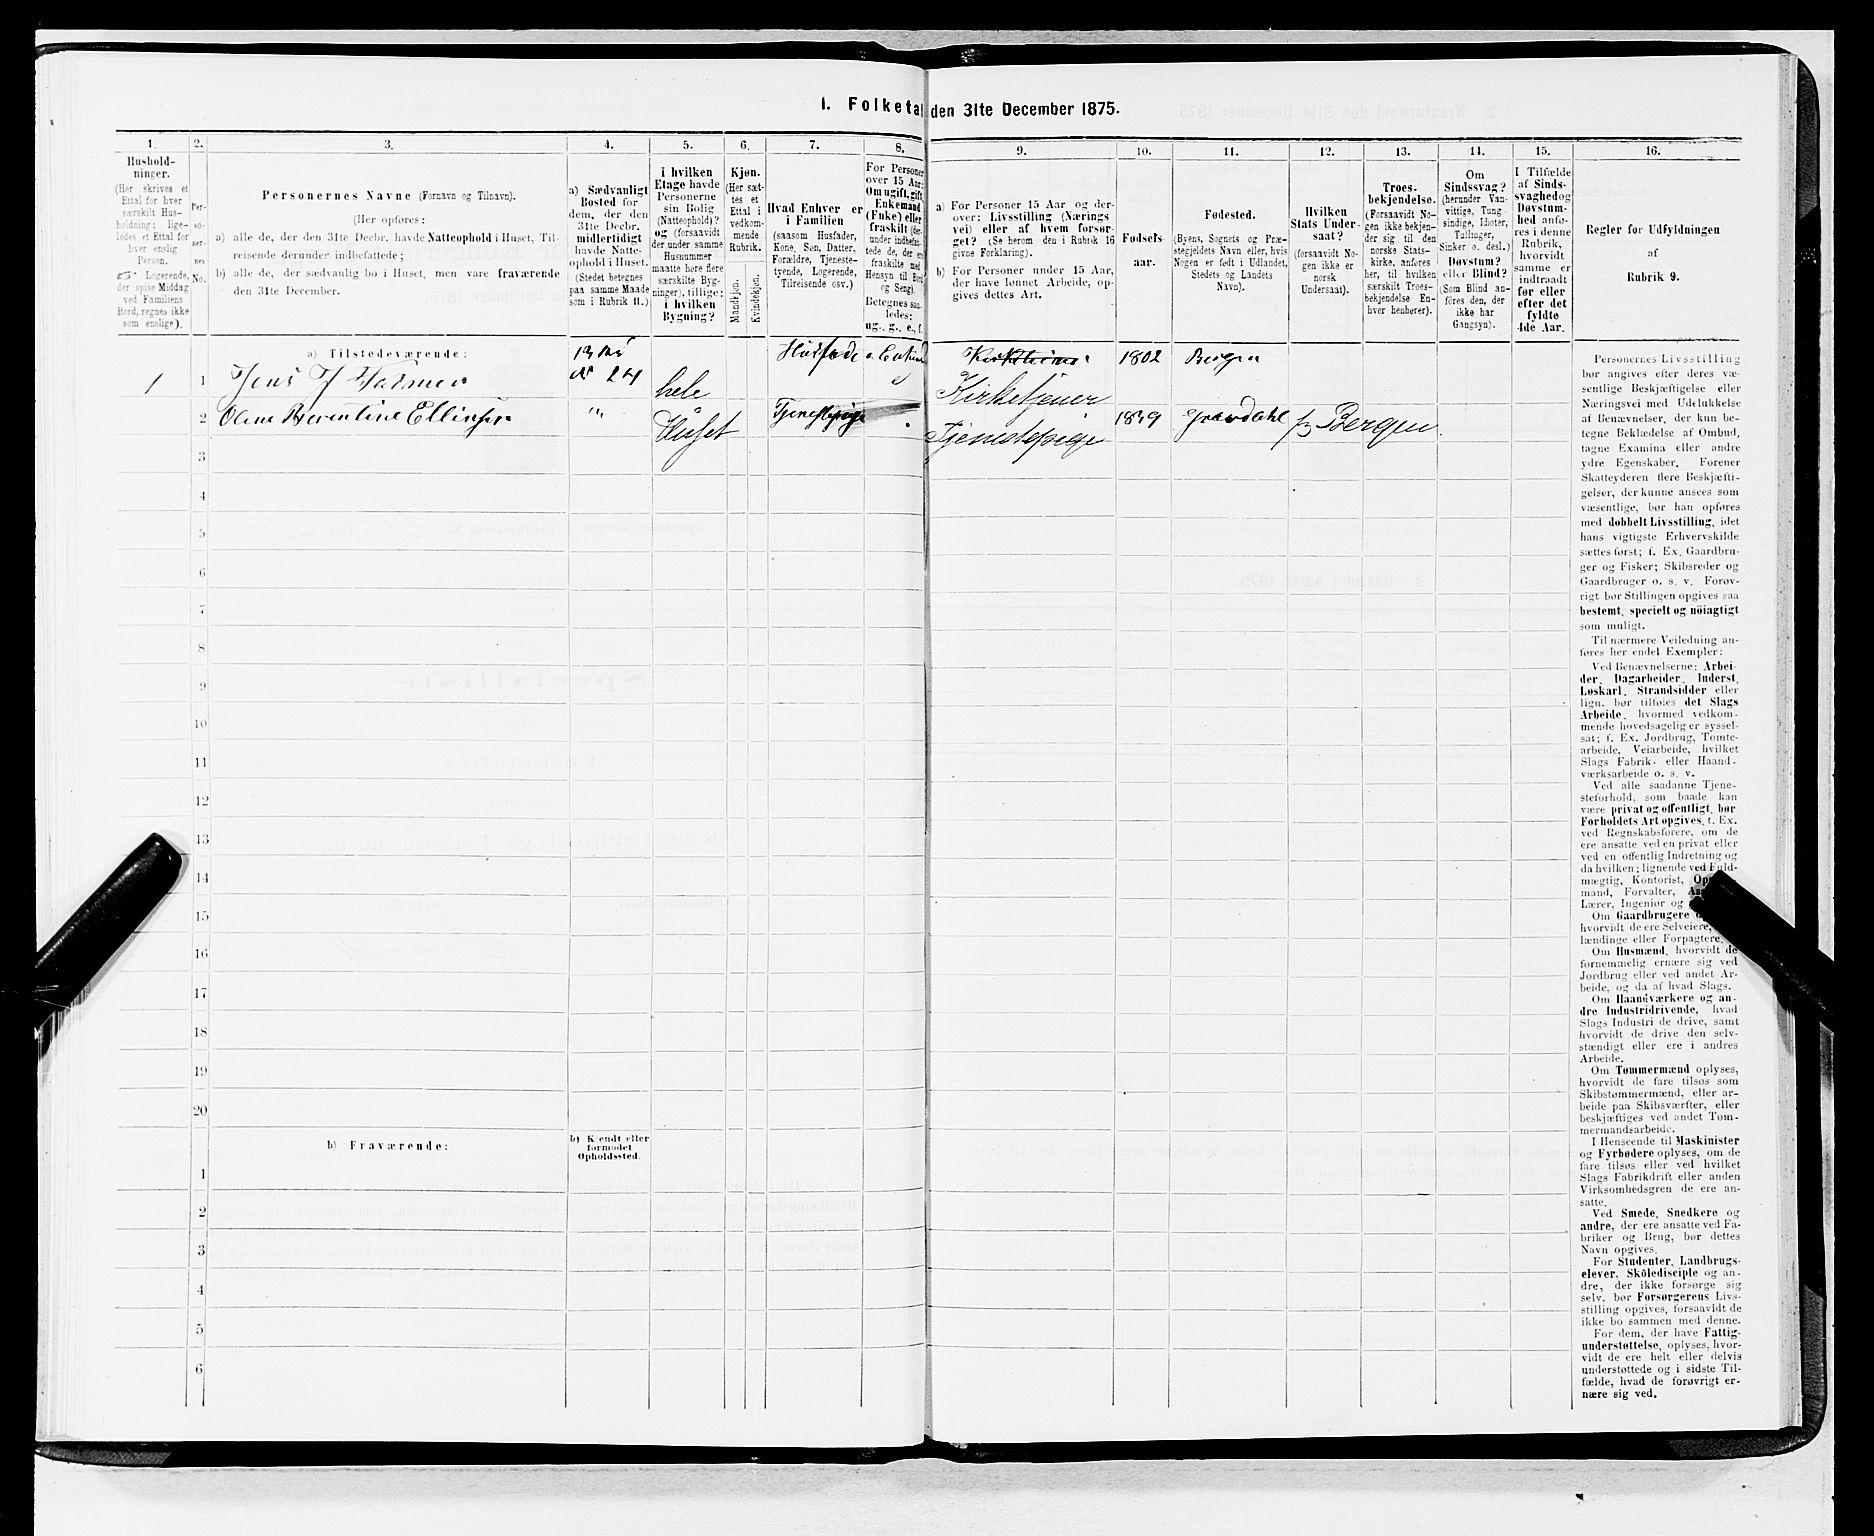 1. Folketal den 31te December 1875.
1.
2.
3.
4.
5.
6.
7.
8.
9.
10.
11.
12.
13.
14.
15.
16.
Hushold-
ninger.
(Her skrives et
Ettal for hver
særskilt Hus-
holdning; lige-
ledes et Ettal for
hver enslig
Person.
Logerende,
der spise Middag
ved Familiens
Bord, regnes ikke
som enslige).
Per-
so-
ner-
nes
No.
Personernes Navne (Fornavn og Tilnavn).
(Her opføres:
a) alle de, der den 31te Decbr. havde Natteophold i Huset, Til-
reisende derunder indbefattede;
b) alle de, der sædvanlig bo i Huset, men vare fraværende
den 31te December.
a) Sædvanligt
Bosted for
dem, der den
31te Decbr.
midlertidigt
havde Natte-
ophold i Huset.
(Stedet betegnes
paa samme Maade
som i Rubrik 11.)
i hvilken
Etage havde
Personerne
sin Bolig
(Natteophold)?
og (forsaavidt
der under samme
Husnummer
maatte høre flere
særskilte Byg-
ninger), tillige:
i hvilken
Bygning?
Kjøn.
(Her sæt-
tes et
Ettal i
vedkom-
mende
Rubrik.
Mandkjøn.
Kvindekjøn.
Hvad Enhver er
i Familien
(saasom Husfader,
Kone, Søn, Datter,
Forældre, Tjeneste-
tyende, Logerende,
Tilreisende osv.)
For Personer
over 15 Aar:
Om ugift, gift,
Enkemand
(Enke) eller
fraskilt (der-
under indbefat-
tede de, der ere
fraskilte med
Hensyn til Bord
og Seng).
Betegnes saa-
ledes:
ug., g., e., f.
a) For Personer 15 Aar og der-
over: Livsstilling (Nærings
vei) eller af hvem forsør-
get? (Se herom den i Rubrik 16
givne Forklaring).
b) For Personer under 15 Aar,
der have lønnet Arbeide, op-
gives dettes Art.
Fødsels-
aar.
Fødested.
(Byens, Sognets og Præ-
stegjeldets Navn eller, hvis
Nogen er født i Udlandet,
Stedets og Landets
Navn).
Hvilken
Stats Under-
saat?
(forsaavidt No-
gen ikke er
norsk
Undersaat).
Troes-
bekjendelse.
(Forsaavidt No-
gen ikke bekjen-
der sig til den
norske Stats-
kirke, anføres
her, til hvilken
særskilt Troes-
bekjendelse En-
hver henhører).
Om
Sindssvag?
(herunder Van-
vittige, Tung-
sindige, Idioter,
Tullinger,
Sinker o. desl.)
Døvstum?
eller Blind?
(Som Blind an-
føres den, der
ikke har
Gangsyn).
I Tilfælde
af Sinds-
svaghed og
Døvstum-
hed anfø-
res i denne
Rubrik,
hvorvidt
samme er
indtraadt
før eller
efter det
fyldte
4de Aar.
Regler for Udfyldningen
af
Rubrik 9.
a) Tilstedeværende:
1 1 Jens J 13 No 24 hele Kirketjener 1802 Bergen
2 Olene Berentine Ellingsen " Huset Tjenestepige Tjenestepige 1839 f Bergen
3
4
5
6
7
8
9
10
11
12
13
14
15
16
17
18
19
20
b) Fraværende:
b) Kjendt eller
formodet
Opholdssted.
1
2
3
4
5
6
Personernes Livsstilling
bør angives efter deres væ-
sentlige Beskjæftigelse eller
Næringsvei med Udelukkelse
af Benævnelser, der kun be-
tegne Beklædelse af Ombud,
tagne Examina eller andre
ydre Egenskaber. Forener
Skatteyderen flere Beskjæfti-
gelser, der kunne ansees som
væsentlige, bør han opføres
med dobbelt Livsstilling, idet
hans vigtigste Erhvervskilde
sættes først; f. Ex. Gaardbru-
ger og Fisker; Skibsreder og
Gaardbruger o. s. v. Forøv-
rigt bør Stillingen opgives saa
bestemt, specielt og nöiagtigt
som muligt.
Til nærmere Veiledning an-
føres her endel Exempler:
Ved Benævnelserne: Arbei-
der, Dagarbeider, Inderst,
Løskarl, Strandsidder eller
lign. bør tilføies det Slags
Arbeide, hvormed vedkom-
mende hovedsagelig er syssel-
sat; f. Ex. Jordbrug, Tomte-
arbeide, Veiarbeide, hvilket
Slags Fabrik- eller Haand-
værksarbeide o. s. v.
Ved alle saadanne Tjene-
steforhold, som baade kan
være privat og offentligt, bør
Forholdets Art opgives, t. Ex.
ved Regnskabsførere, om de
ere ansatte ved en privat eller
ved en offentlig Indretning og
da hvilken; lignende ved Fuld-
mægtig, Kontorist,
mand, Forvalter,
Lærer, Ingeniør og
Om Gaardbrugere
hvorvidt de ere Selveiere,
lændinge eller Forpagtere.
Om Husmænd, hvorvidt de
fornemmelig ernære sig ved
Jordbrug eller ved andet Ar-
beide, og da af hvad Slags.
Om Haandværkere og an-
dre Industridrivende, hvad
Slags Industri de drive, samt
hvorvidt de drive den selv-
stændigt eller ere i andres
Arbeide.
Om Tømmermænd oplyses,
hvorvidt de fare tilsøs som
Skibstømmermænd, eller ar-
beide paa Skibsværfter, eller
beskjæftiges ved andet Tøm-
mermandsarbeide.
I Henseende til Maskinister
og Fyrbødere oplyses, om de
fare tilsøs eller ved hvilket
Slags Fabrikdrift eller anden
Virksomhedsgren de ere an-
satte.
Ved Smede, Snedkere og
andre, der ere ansatte ved Fa-
briker og Brug, bør dettes
Navn opgives.
For Studenter, Landbrugs-
elever, Skôledisciple og an-
dre, der ikke forsørge sig
selv, bør Forsørgerens Livs-
stilling opgives, forsaavidt de
ikke bo sammen med denne.
For dem, der have Fattig-
understøttelse, oplyses, hvor-
vidt de ere helt eller delvis
understøttede og i sidste Til-
fælde, hvad de forøvrigt er-
nære sig ved.